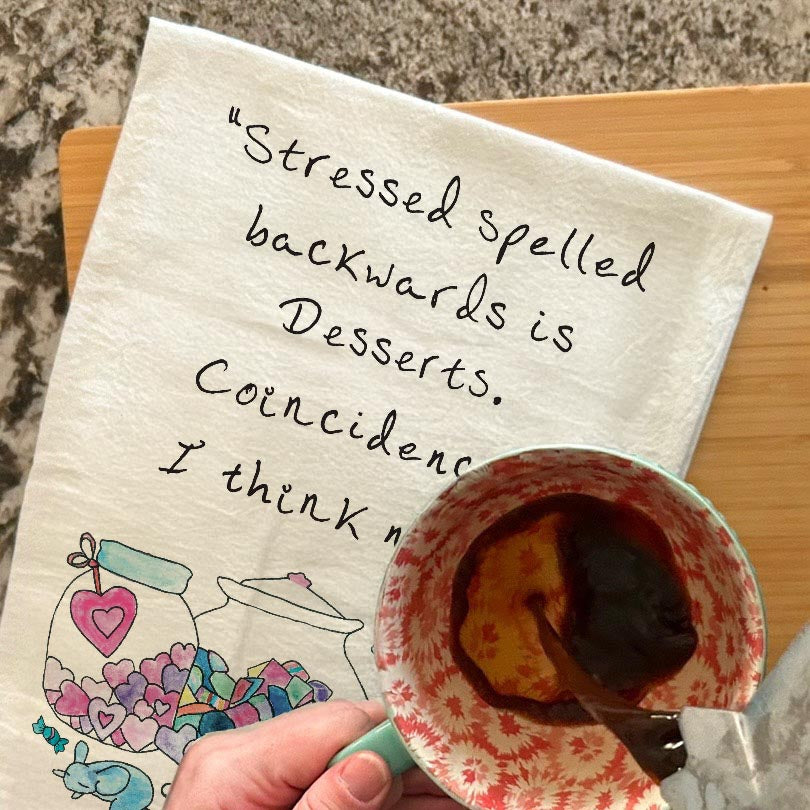 "Stressed spelled
backwards is
Desserts.
Coincidenc
I think n